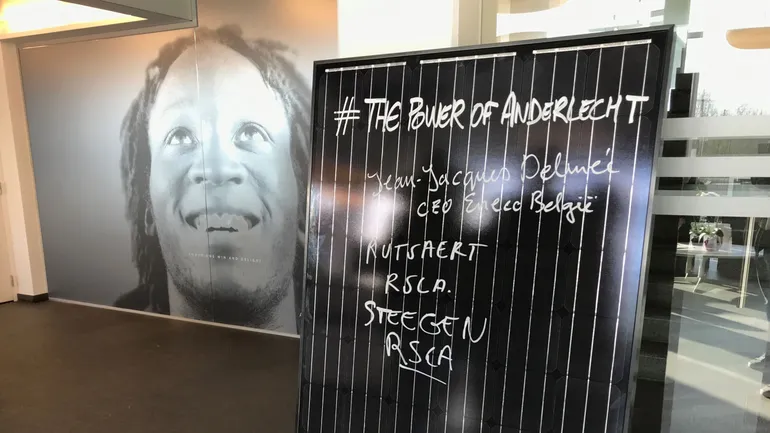 # THE POWER OF ANDERLECHT
Jean-Jacques Delmée
CEO Eneco België
RUTSAERT
RSCA.
STEEGEN
RSCA